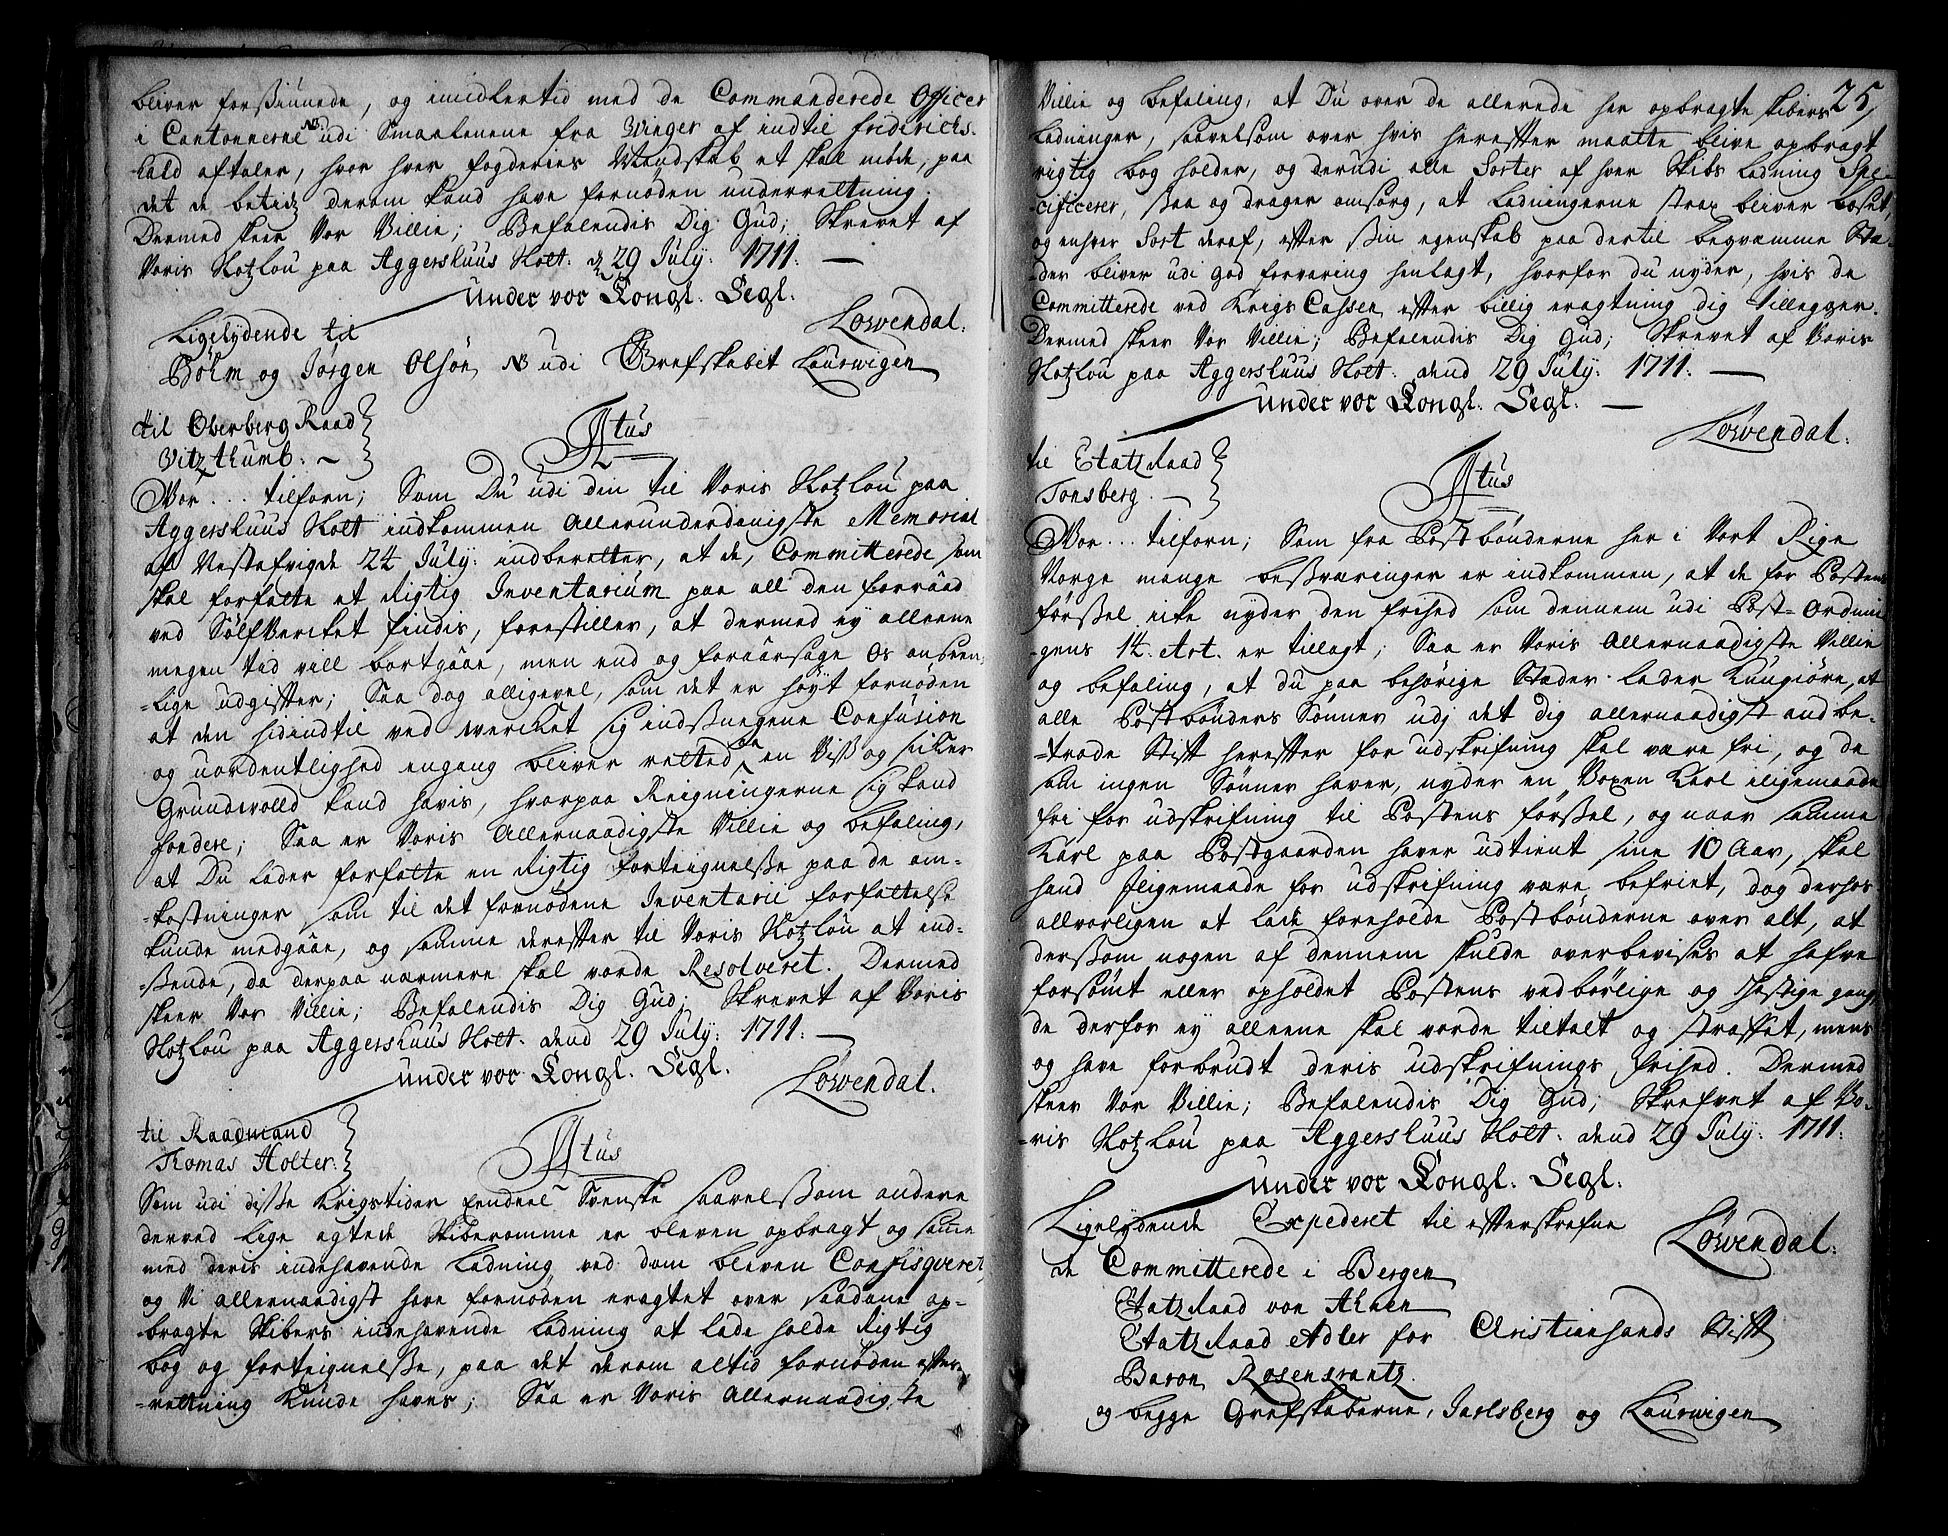 bliver forsiunede, og imidlertid med de Commanderede Officer
i Cantonnerne NB udi Smaalenene fra Winger af indtil friderichs-
-hald aftaler, hvor hver fogderies Mandskab et skal møde, paa
det de betids derom kand have fornøden underrettning.
Dermed skeer Vor Villie; Befalendis Dig Gud; Skrevet af
Voris Slotzlou paa Aggershuus Slott. d 29 July. 1711. —
under vor Kongl. Segl.
Løwendal.
Ligelydende til
Bøhm og Jørgen Olsøn NB udi Grefskabet Laurwigen
til Oberberg Raad
Vitzthumb. ~
Atus
Vor ... tilforn; Som Du udi din til Voris Slotzlou paa
Aggershuus Slott indkommen Allerunderdanigste Memorial
af Nestafvigde 24 July: indberetter, at de, Committerede som
skal forfatte et Rigtig Inventarium paa all den forraad
ved Sølfverket findis, forestiller, at dermed ey alleene
megen tid vill bortgaae, men end og foraarsage Os anseen-
-lige udgifter; Saa dog alligevel, som det er høyt fornøden
at den hidindtil ved wercket sig indsnegene Confusion
og uordentlighed engang bliver retted da en Viß og sicker
Grundvolld kand havis, hvorpaa Reigningerne sig kand
fondere; Saa er Voris Allernaadigste Villie og befaling,
at Du lader forfatte en Rigtig forteignelsse paa de om-
-kostninger som til det fornødene Inventarii forfattelse
kunde medgaae, og samme derefter til Voris Slotzlou at ind-
-ssende, da derpaa nærmere skal vorde Resolveret. Dermed
skeer Vor Villie; Befalendis Dig Gud; Skrevet af Voris
Slotzlou paa Aggershuus Slott. dend 29 July: 1711. —
under vor Kongl. Segl.
Løwendal.
til Raadmand
Thomas Holter.
Atus
Som udi disse Krigstider fendeel Svenske saavelssom andere
derved lige agtede Skiberomme er bleven opbragt og samme
med deris indehavende Ladning ved dom bleven Confisqveret,
og Vi allernaadigst have fornøden eragtet over saadane op-
-bragte Skibers indehavende Ladning at lade holde Rigtig
bog og forteignelsse, paa det derom altid fornøden efter-
-rettning kunde haves; Saa er Voris Allernaadigste
25
Villie og befaling, at Du over de allerede her opbragte skibers
Ladninger, saavelsom over hvis herefter maatte blive opbragt
rigtig bog holder, og derudi alle Sorter af hver Skibs Ladning Spe-
-cificerer, saa og drager omsorg, at Ladningerne strax bliver losset,
og enhver Sort deraf, efter sin egenskab paa dertil beqvæmme Stæ-
-der bliver udi god forvaring henlagt, hvorfor du nyder, hvis de
Committerede ved Krigs Cassen efter billig eragtning dig tillegger.
Dermed skeer Vor Villie; Befalendis Dig Gud; Skrevet af Voris
Slotzlou paa Aggershuus Slott. dend 29 July: 1711. —
under vor Kongl. Segl. —
Løwendal.
til Etatz Raad
Tonsberg. —
Atus
Vor ... tilforn; Som fra Postbønderne her i Vort Rige
Norge mange besværinger er indkommen, at de for Postens
førssel icke nyder den frihed som dennem udi Post-Ordnin
-gens 14. Art. er tillagt; Saa er Voris Allernaadigste Villie
og befaling, at du paa behørige Steder lader kungiøre, at
alle Postbønders Sønner udj det dig allernaadigst andbe-
-trode Stift herefter for udskrifning skal være fri, og de
som ingen Sønner haver, nyder en Voxen Karl iligemaade
fri for udskrifning til Postens førssel, og naar samme
Karl paa Postgaarden haver udtient sine 10 Aar, skal
hand iligemaade for udskrifning være befriet, dog derhos
allvorligen at lade foreholde Postbønderne over alt, at
derssom nogen af dennem skulde overbevises at hafve
forsømt eller opholdet Postens vedbørlige og hastige gang
de derfor ey alleene skal vorde tiltalt og straffet, mens
og have forbrudt deris udskrifnings frihed. Dermed
skeer Vor Villie; Befalendis Dig Gud; Skrefvet af Vo-
-ris Slotzlou paa Aggershuus Slott. dend 29 July: 1711.
under vor Kongl. Segl.
Løwendal.
Ligelydende Expederet til efterskrefne
de Committerede i Bergen
Etatz Raad von Ahnen
Etatz Raad Adler for Christiansands Stift
Baron Rosencrantz.
og begge Grefskaberne, Jarlsberg og Laurwigen